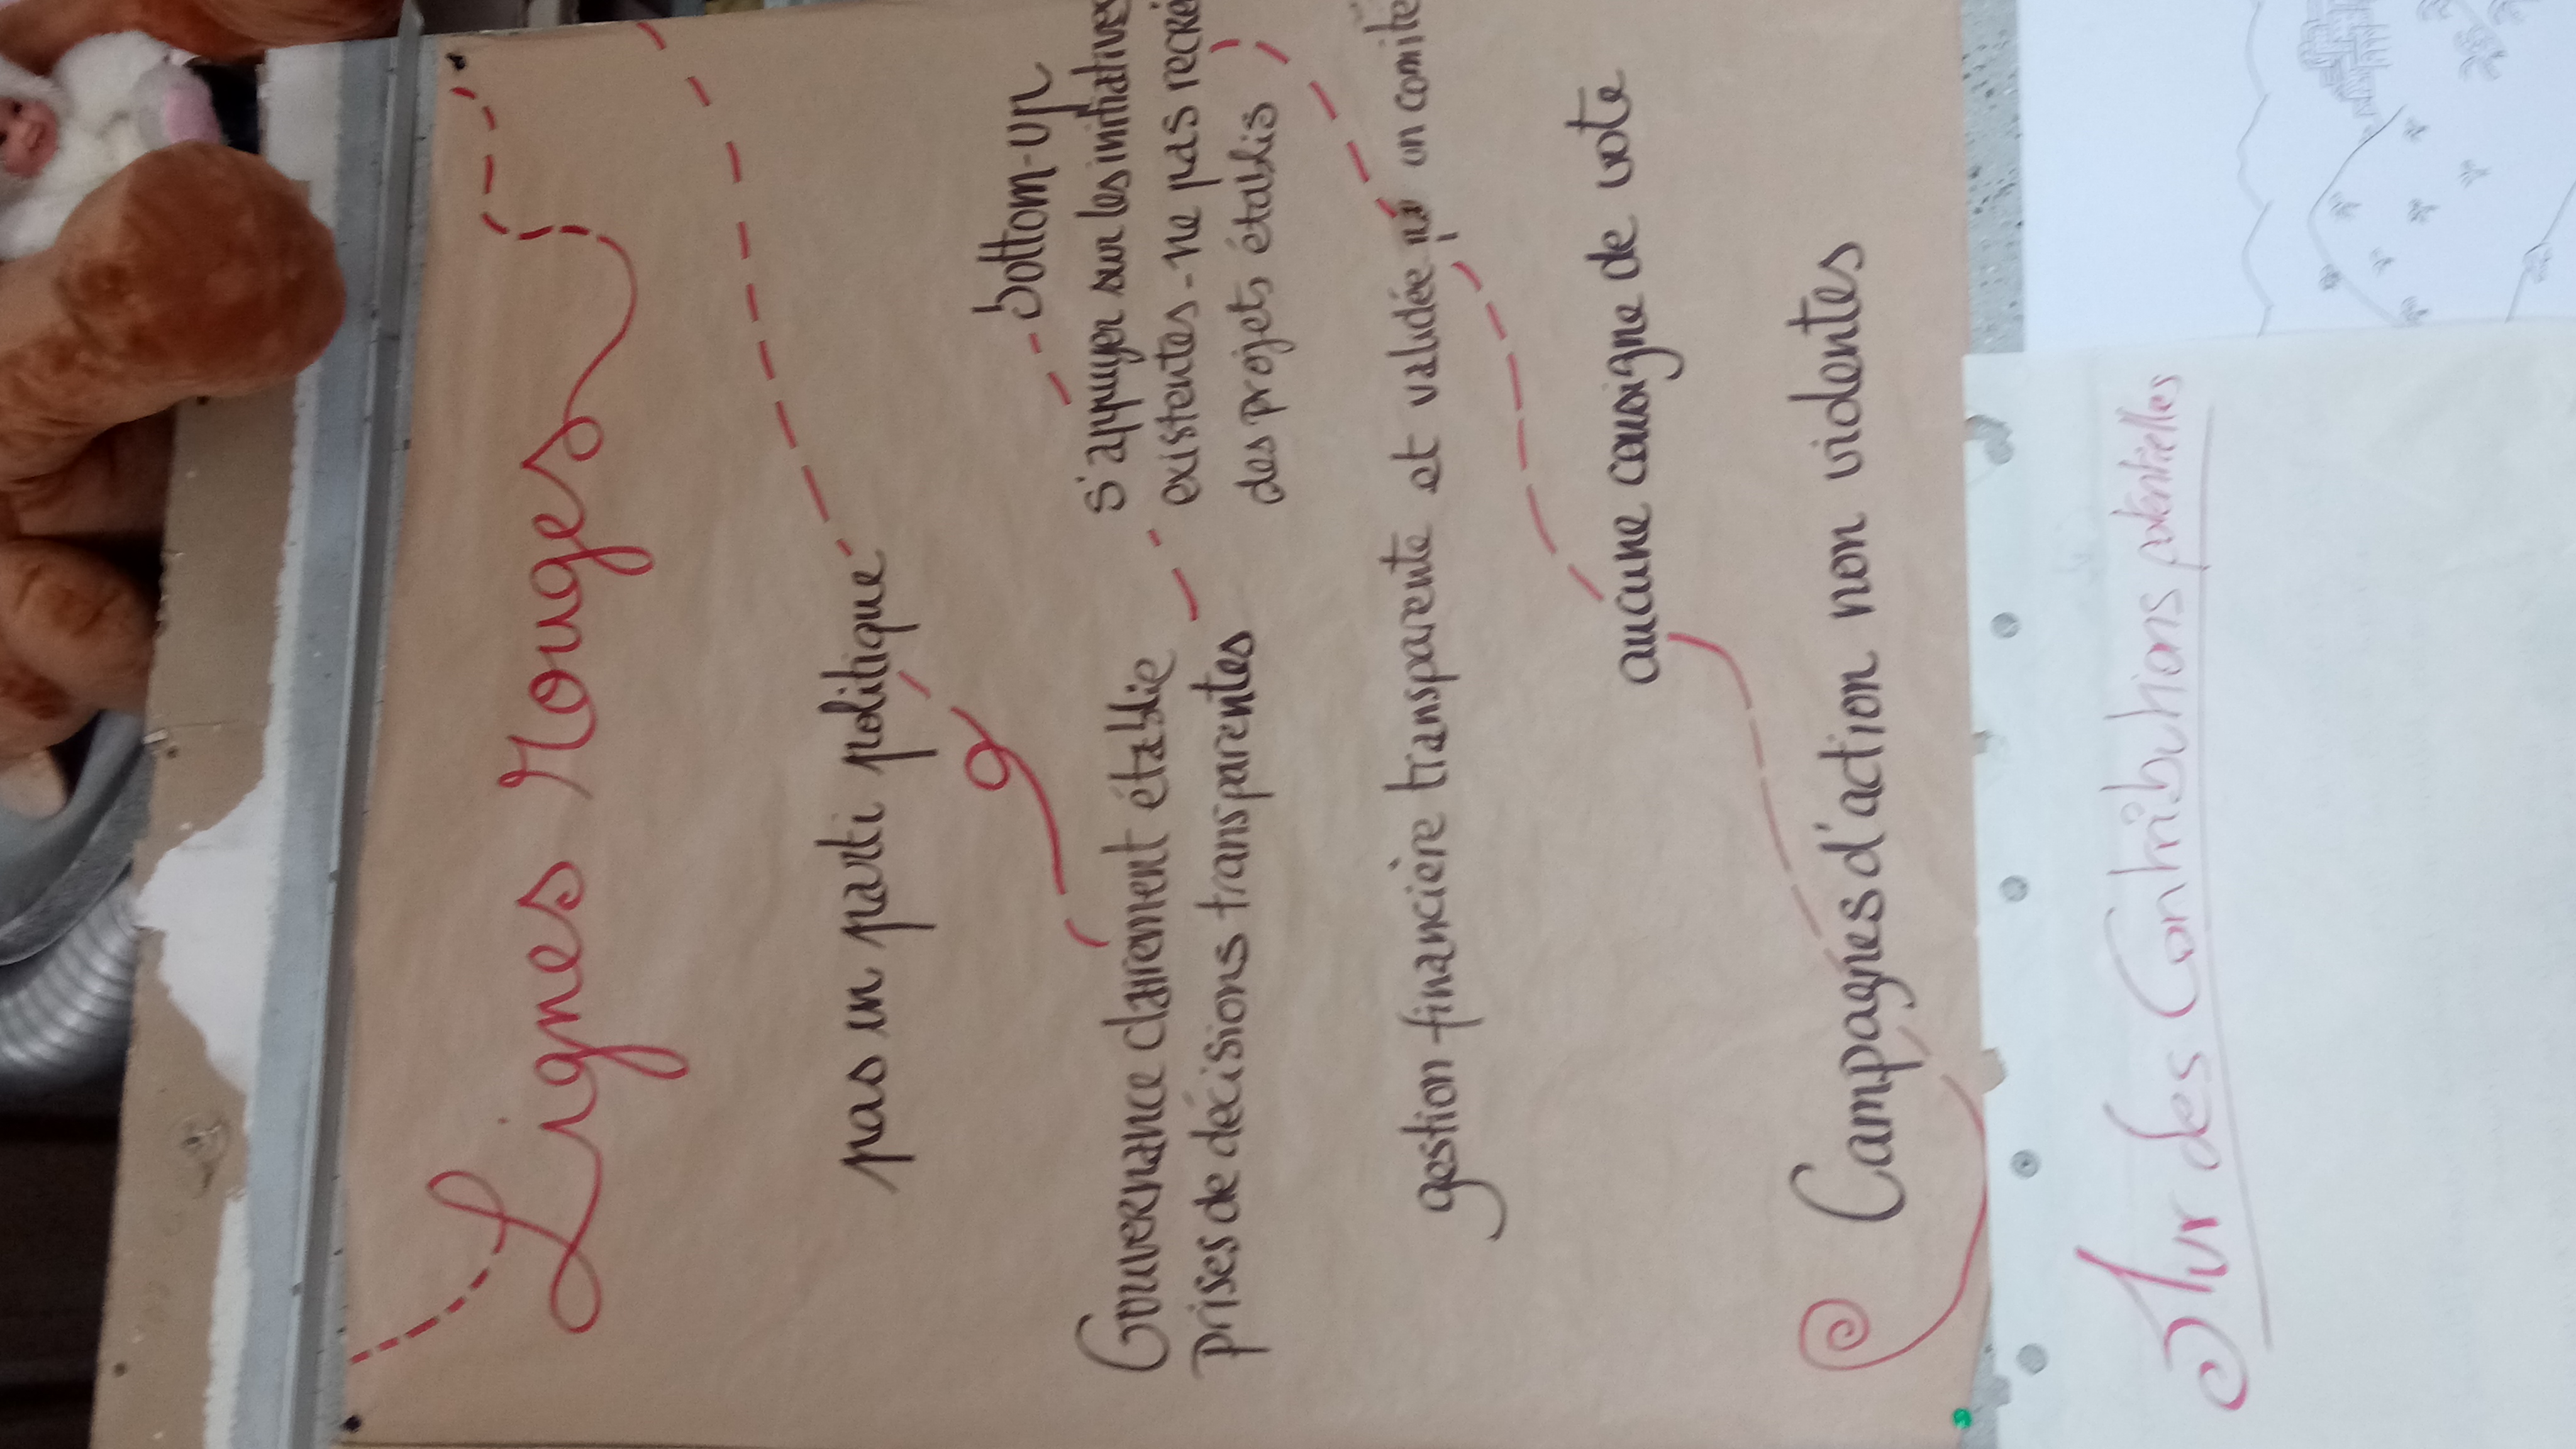 Lignes rouges
pas un parti politique
bottom-up
s'appuyer sur les initiatives
existentes - ne pas recré
des projets établis
Gouvernance clairement établie
prises de décisions transparentes
gestion financière transparente et validée par un comité
aucune consigne de vote
Campagnes d'action non videntes
Mur des Contributions potentielles